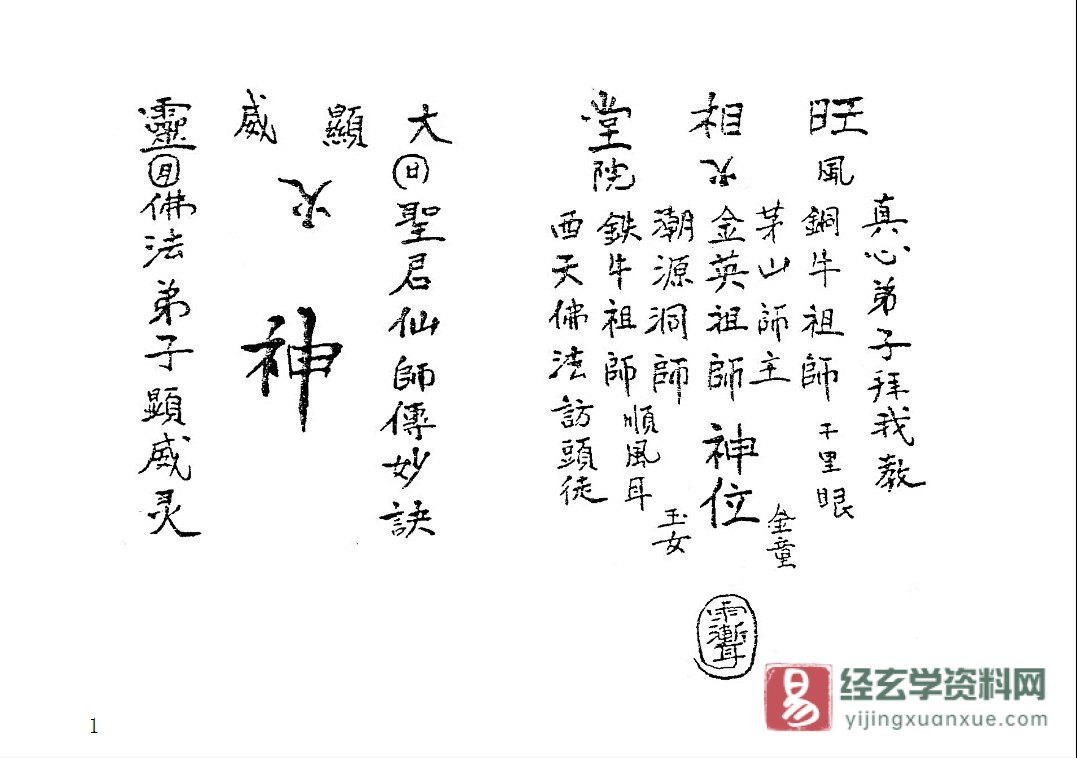 旺相堂
風火院
真心弟子拜我教
銅牛祖師
千里眼
茅山師主
金童
金英祖師
神位
潮源洞師
玉女
鉄牛祖師
順風耳
西天佛法訪頭徒
大顯威靈
日聖君仙師傳妙訣
火
神
月佛法弟子顯威灵
1
易
经玄学资料网
yijingxuanxue.com